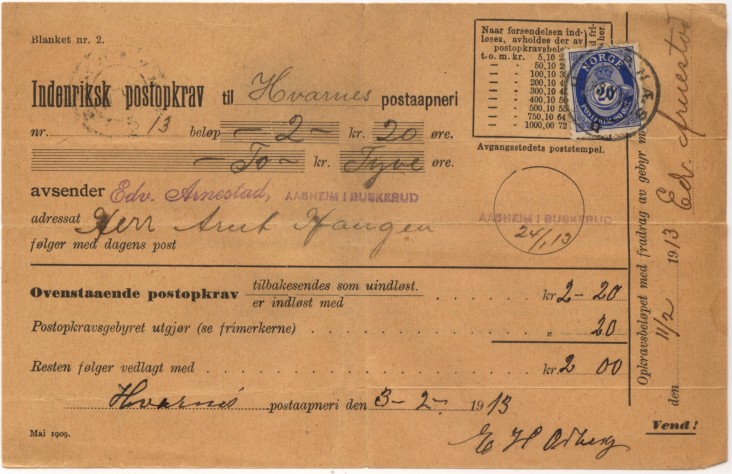 Blanket nr. 2.
Naar forsendelsen ind-
løses, avholdes der av
postopkravsbelø
t.o.m. kr. 5,10 2
50,10
100,10
200,10
300,10
400,10
500,10
750,10 64
1000,00 72
NORGE
20
Avgangsstedets poststempel.
Indenriksk postopkrav til Hvarnes postaapneri
nr. 13 beløp - 2 - kr. 20 øre.
- To - kr. Tyve øre.
avsender Edv. Arnestad, AASHEIM I BUSKERUD
AASHEIM I BUSKERUD
24/1 13
adressat Herr Arnt Haugen
følger med dagens post
Ovenstaaende postopkrav tilbakesendes som uindløst.
er indløst med kr 2-20
Postopkravsgebyret utgjør (se frimerkerne) " 20
Resten følger vedlagt med kr 2 00
Hvarnes postaapneri den 3-2- 1913
E H
Mai 1909.
Vend!
Opkravsbeløpet med fradrag av gebyr mo
den 11/2 1913 Edv. Arnestad